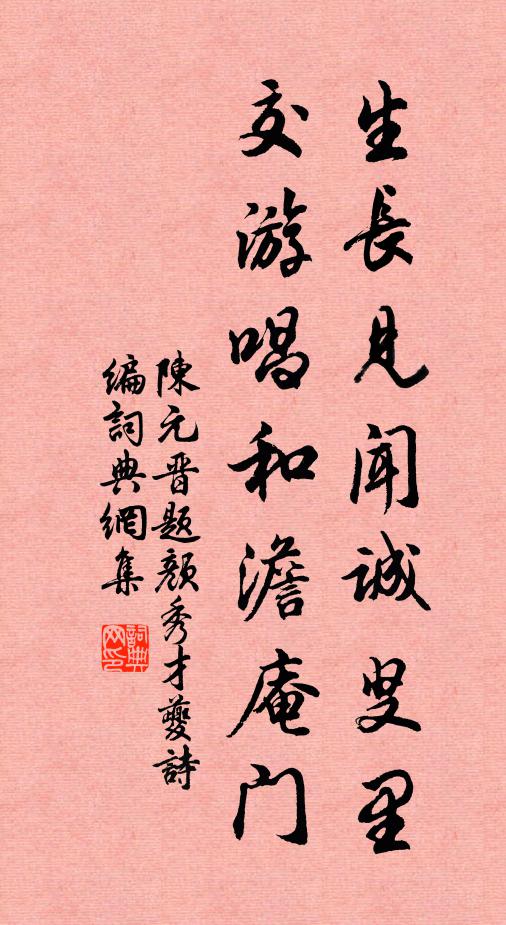 生長見聞誠叟里
交游唱和澹庵門
陳元晋題顏秀才夔詩
編詞典網集
詞典网印